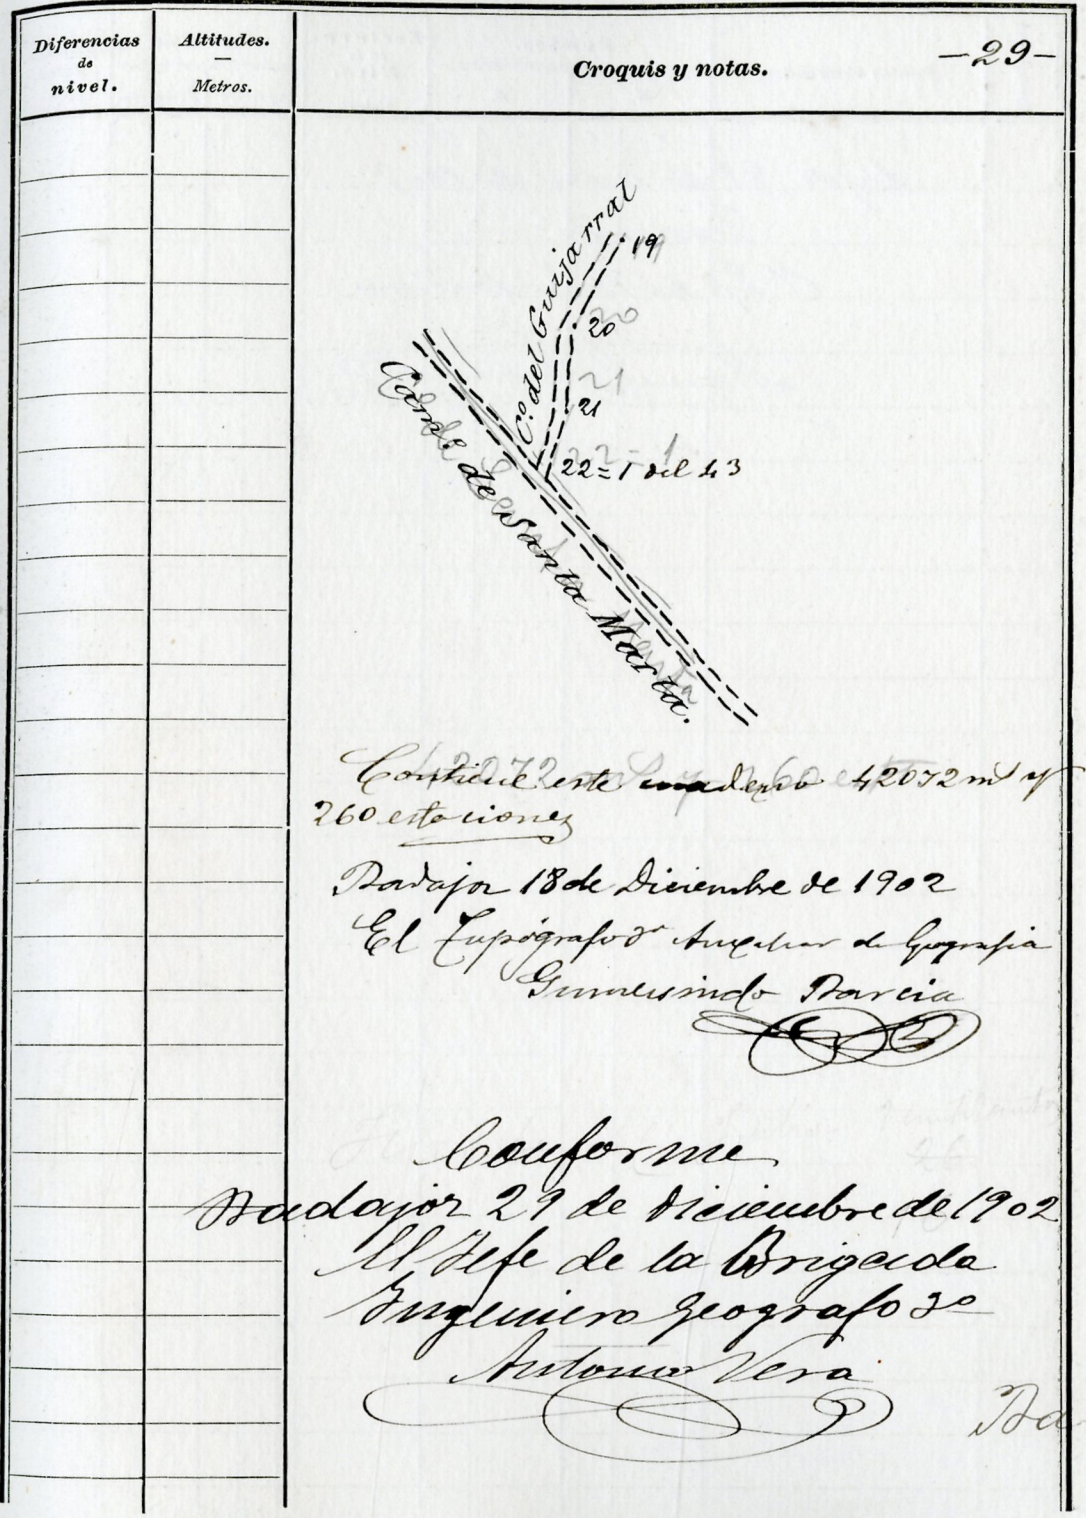 Diferencias
de
nivel.
Altitudes.
—
Metros.
Croquis y notas.
-29-
Cº. del Guijarral
19
20
20
21
21
22=1 del 43
de Santa Marta.
Contiene este cuaderno 42072 mts y
260 estaciones
Badajoz 18 de Diciembre de 1902
El Topógrafo Auxiliar de Geografia
Gumersindo Barcia
Conforme
Badajoz 29 de Diciembre de 1902
El Jefe de la Brigada
Ingeniero Geografo 3º
Antonio Vera
Ba